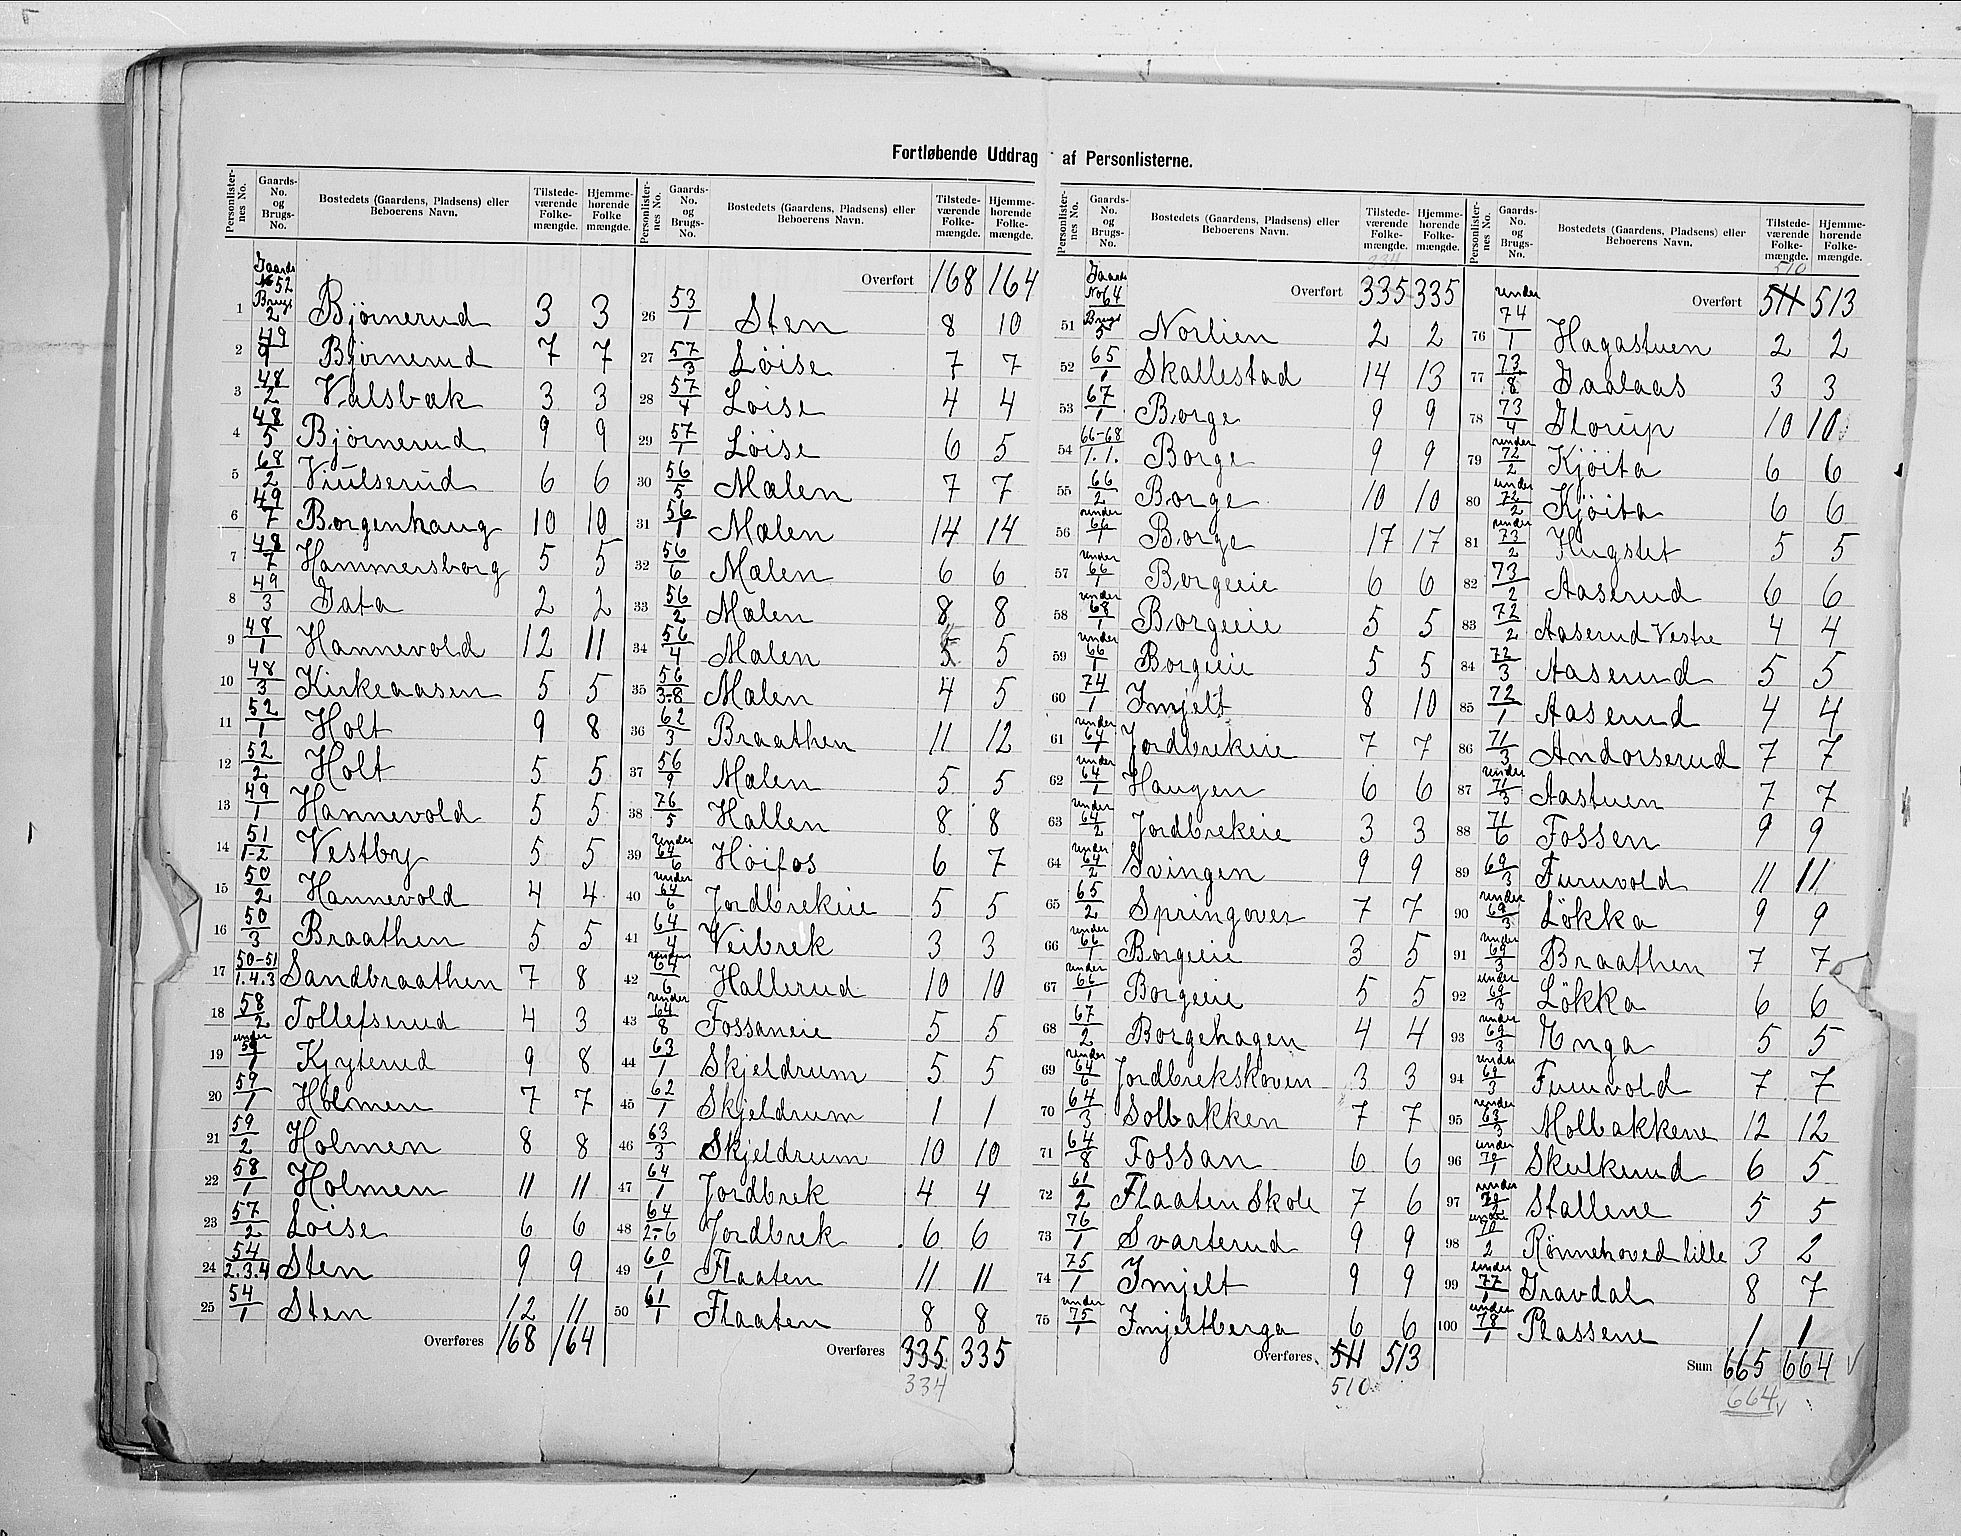 Fortløbende Uddrag af Personlisterne.
Personlister-nes No. | Gaards-No. og Brugs-No. | Bostedets (Gaardens, Pladsens) eller Beboerens Navn. | Tilstede-værende Folke-mængde. | Hjemme-hørende Folke mængde.
1 Gaards No 52 Brugs 2 Bjørnerud 3 3
2 49/9 Bjørnerud 7 7
3 48/2 Valsbæk 3 3
4 48/5 Bjørnerud 9 9
5 68/2 Viulserud 6 6
6 49/7 Borgenhaug 10 10
7 48/7 Hammersborg 5 5
8 49/3 Jata 2 2
9 48/1 Hannevold 12 11
10 48/3 Kirkeaasen 5 5
11 52/1 Holt 9 8
12 52/2 Holt 5 5
13 49/1 Hannevold 5 5
14 51/1-2 Vestby 5 5
15 50/2 Hannevold 4 4
16 50/3 Braathen 5 5
17 50-51/1.4.3 Sandbraathen 7 8
18 58/2 Tollefserud 4 3
19 under 59/1 Kjyterud 9 8
20 59/1 Holmen 7 7
21 59/2 Holmen 8 8
22 58/1 Holmen 11 11
23 57/2 Løise 6 6
24 54/2.3.4 Sten 9 9
25 54/1 Sten 12 11
Overføres 168 164
Personlister-nes No. | Gaards-No. og Brugs-No. | Bostedets (Gaardens, Pladsens) eller Beboerens Navn. | Tilstede-værende Folke-mængde. | Hjemme-hørende Folke-mængde.
Overført 168 164
26 53/1 Sten 8 10
27 57/3 Løise 7 7
28 57/4 Løise 4 4
29 57/1 Løise 6 5
30 56/5 Mælen 7 7
31 56/1 Mælen 14 14
32 56/6 Mælen 6 6
33 56/2 Mælen 8 8
34 56/4 Mælen 5 5
35 56/3-8 Mælen 4 5
36 62/3 Braathen 11 12
37 56/9 Mælen 5 5
38 76/5 Hallen 8 8
39 under 64/6 Høifos 6 7
40 under 64/6 Jordbrekeie 5 5
41 64/4 Veibrek 3 3
42 under 64/6 Hallerud 10 10
43 under 64/8 Fossaneie 5 5
44 63/1 Skjeldrum 5 5
45 62/1 Skjeldrum 1 1
46 63/3 Skjeldrum 10 10
47 64/1 Jordbrek 4 4
48 64/2-6 Jordbrek 6 6
49 60/1 Flaaten 11 11
50 61/1 Flaaten 8 8
Overføres 335 335
334
Personlister-nes No. | Gaards-No. og Brugs-No. | Bostedets (Gaardens, Pladsens) eller Beboerens Navn. | Tilstede-værende Folke-mængde. | Hjemme-hørende Folke-mængde.
334
Overført 335 335
51 Gaards No 64 Brugs 5 Norlien 2 2
52 65/1 Skallestad 14 13
53 67/1 Borge 9 9
54 66-68/1.1. Borge 9 9
55 66/2 Borge 10 10
56 under 66/1 Borge 17 17
57 under 66/1 Borgeeie 6 6
58 under 68/1 Borgeeie 5 5
59 under 66/1 Borgeeie 5 5
60 74/1 Imjelt 8 10
61 under 64/1 Jordbrekeie 7 7
62 under 64/1 Haugen 6 6
63 under 64/2 Jordbrekeie 3 3
64 under 64/2 Svingen 9 9
65 65/2 Springover 7 7
66 under 66/1 Borgeeie 3 5
67 under 66/1 Borgeeie 5 5
68 67/2 Borgehagen 4 4
69 under 64/6 Jordbrekskoven 3 3
70 64/3 Solbakken 7 7
71 64/8 Fossan 6 6
72 61/2 Flaaten Skole 7 6
73 76/1 Svarterud 9 9
74 75/1 Imjelt 9 9
75 under 75/1 Imjeltberga 6 6
Overføres 511 513
510
Personlister-nes No. | Gaards-No. og Brugs-No. | Bostedets (Gaardens, Pladsens) eller Beboerens Navn. | Tilstede-værende Folke-mængde. | Hjemme-hørende Folke-mængde.
510
Overført 511 513
76 under 74/1 Hagastuen 2 2
77 73/8 Jaalaas 3 3
78 73/4 Glorup 10 10
79 under 72/2 Kjøita 6 6
80 under 72/2 Kjøita 6 6
81 under 73/2 Hugstet 5 5
82 73/2 Aaserud 6 6
83 72/2 Aaserud Vestre 4 4
84 72/3 Aaserud 5 5
85 72/1 Aaserud 4 4
86 71/3 Andorserud 7 7
87 under 71/3 Aastuen 7 7
88 71/6 Fossen 9 9
89 69/3 Furuvold 11 11
90 under 69/3 Løkka 9 9
91 under 69/3 Braathen 7 7
92 under 69/3 Løkka 6 6
93 under 69/3 Enga 5 5
94 under 69/3 Furuvold 7 7
95 under 63/3 Molbakkene 12 12
96 under 70/1 Skulkerud 6 5
97 under Stallene 5 5
98 under 70/2 Rønnehoved lille 3 2
99 under 77/1 Gravdal 8 7
100 under 78/1 Plassene 1 1
Sum 665 664
664